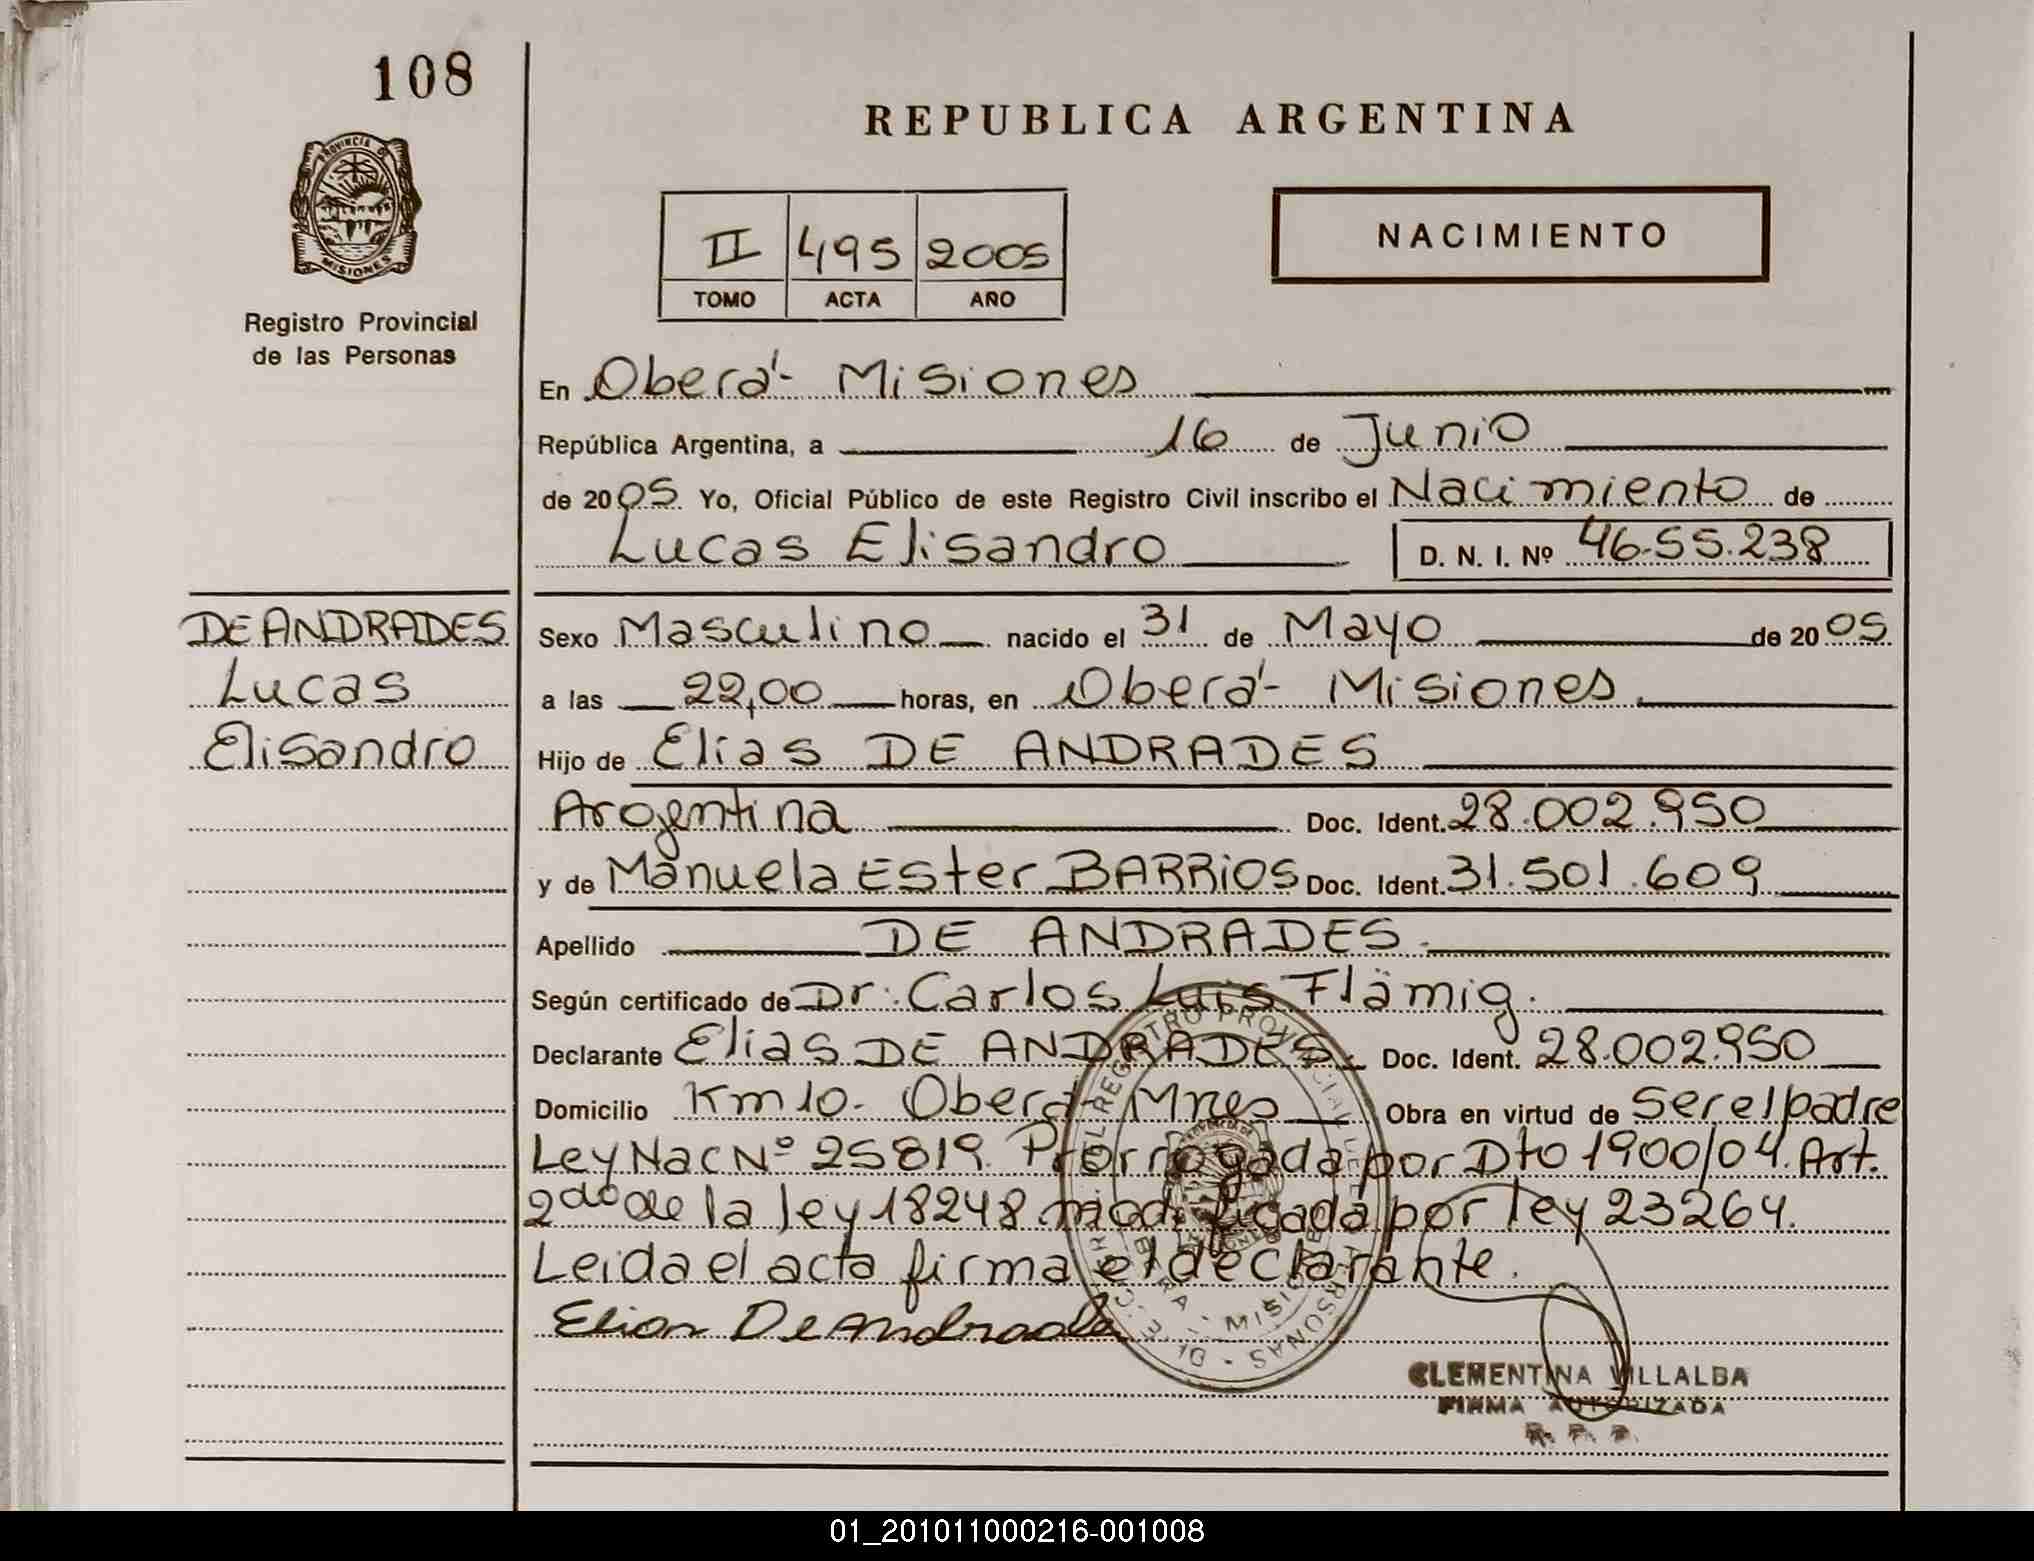 108
REPUBLICA ARGENTINA
PROVINCIA DE
MISIONES
II 495 2005
TOMO ACTA AÑO
NACIMIENTO
Registro Provincial
de las Personas
En Oberá - Misiones
República Argentina, a 16 de Junio
de 2005 Yo, Oficial Público de este Registro Civil inscribo el Nacimiento de
Lucas Elisandro D. N. I. Nº 46.55.238
DE ANDRADES
Lucas
Elisandro
Sexo Masculino nacido el 31 de Mayo de 2005
a las 22,00 horas, en Oberá - Misiones.
Hijo de Elias DE ANDRADES
Argentina Doc. Ident. 28.002.950
y de Manuela Ester BARRIOS Doc. Ident. 31.501.609
Apellido DE ANDRADES.
Según certificado de Dr. Carlos Luis Flämig.
Declarante Elias DE ANDRADES. Doc. Ident. 28.002.950
Domicilio Km 10. Oberá - Mnes Obra en virtud de Ser el padre
Ley Nac Nº 25819. Prorrogada por Dto 1900/04. Art.
2do de la ley 18248 modificada por ley 23264.
Leida el acta firma el declarante.
Elias De Andrade
REGISTRO PROVINCIAL DE LAS PERSONAS
CLEMENTINA VILLALBA
FIRMA AUTORIZADA
R. P. P.
01_201011000216-001008